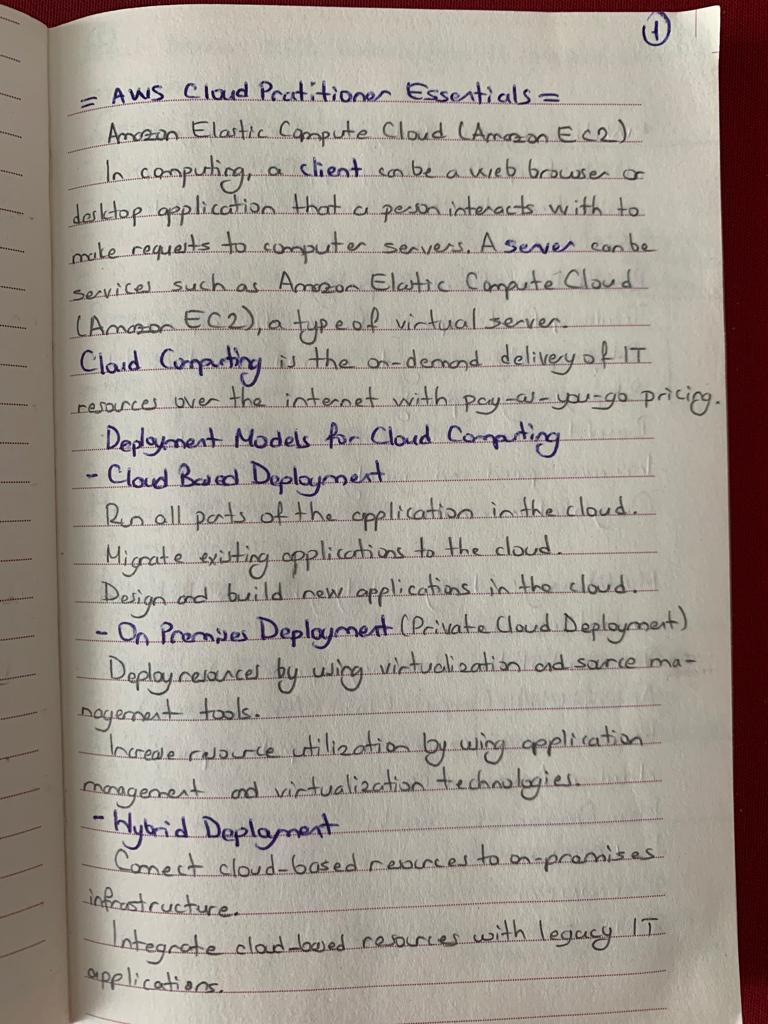 1
= AWS Cloud Pratitioner Essentials =
Amazon Elastic Compute Cloud (Amazon EC2)
In computing, a client can be a web browser or
desktop application that a person interacts with to
make requests to computer servers. A server can be
services such as Amazon Elastic Compute Cloud
(Amazon EC2), a type of virtual server.
Cloud Computing is the on-demand delivery of IT
resources over the internet with pay-as-you-go pricing.
Deployment Models for Cloud Computing
- Cloud Based Deployment
Run all parts of the application in the cloud.
Migrate existing applications to the cloud.
Design and build new applications in the cloud.
- On Premises Deployment (Private Cloud Deployment)
Deploy resources by using virtualization and source ma-
nagement tools.
Increase resource utilization by using application
management and virtualization technologies.
- Hybrid Deployment
Connect cloud-based resources to on-premises
infrastructure.
Integrate cloud-based resources with legacy IT
applications.